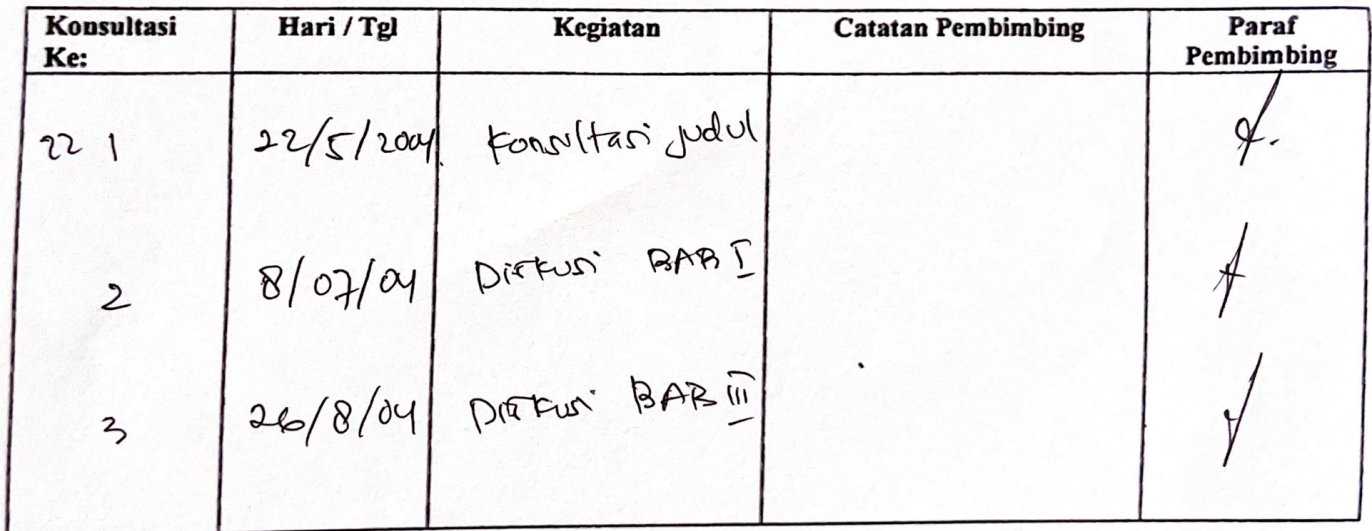 Konsultasi Ke: Hari / Tgl Kegiatan Catatan Pembimbing Paraf Pembimbing
22 1 22/5/2004 Konsultasi judul
2 8/07/04 Diskusi BAB I
3 26/8/04 Diskusi BAB III